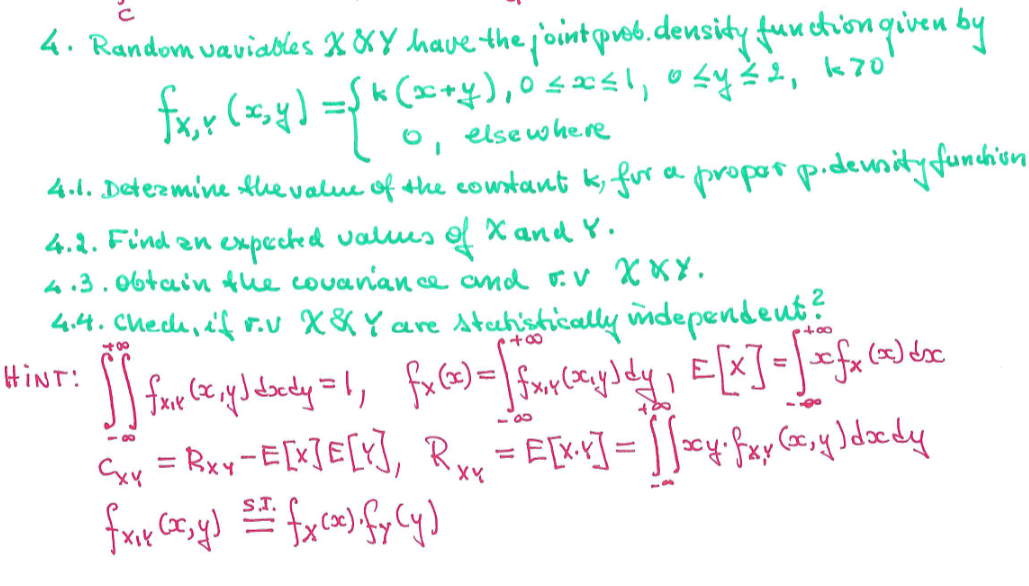 c
4. Random variables X & Y have the joint prob. density function given by
f_{X,Y}(x,y) = { k(x+y), 0 ≤ x ≤ 1, 0 ≤ y ≤ 2, k>0
0, elsewhere
4.1. Determine the value of the constant k, for a proper p. density function
4.2. Find an expected values of X and Y.
4.3. Obtain the covariance and r.v X & Y.
4.4. Check, if r.v X & Y are statistically independent?
HINT: ∫∫_{-∞}^{+∞} f_{X,Y}(x,y)dxdy = 1, f_X(x) = ∫_{-∞}^{+∞} f_{X,Y}(x,y)dy, E[X] = ∫_{-∞}^{+∞} x f_X(x)dx
C_{XY} = R_{XY} - E[X]E[Y], R_{XY} = E[X·Y] = ∫∫_{-∞}^{+∞} xy·f_{X,Y}(x,y)dxdy
f_{X,Y}(x,y) =^{S.I.} f_X(x)·f_Y(y)